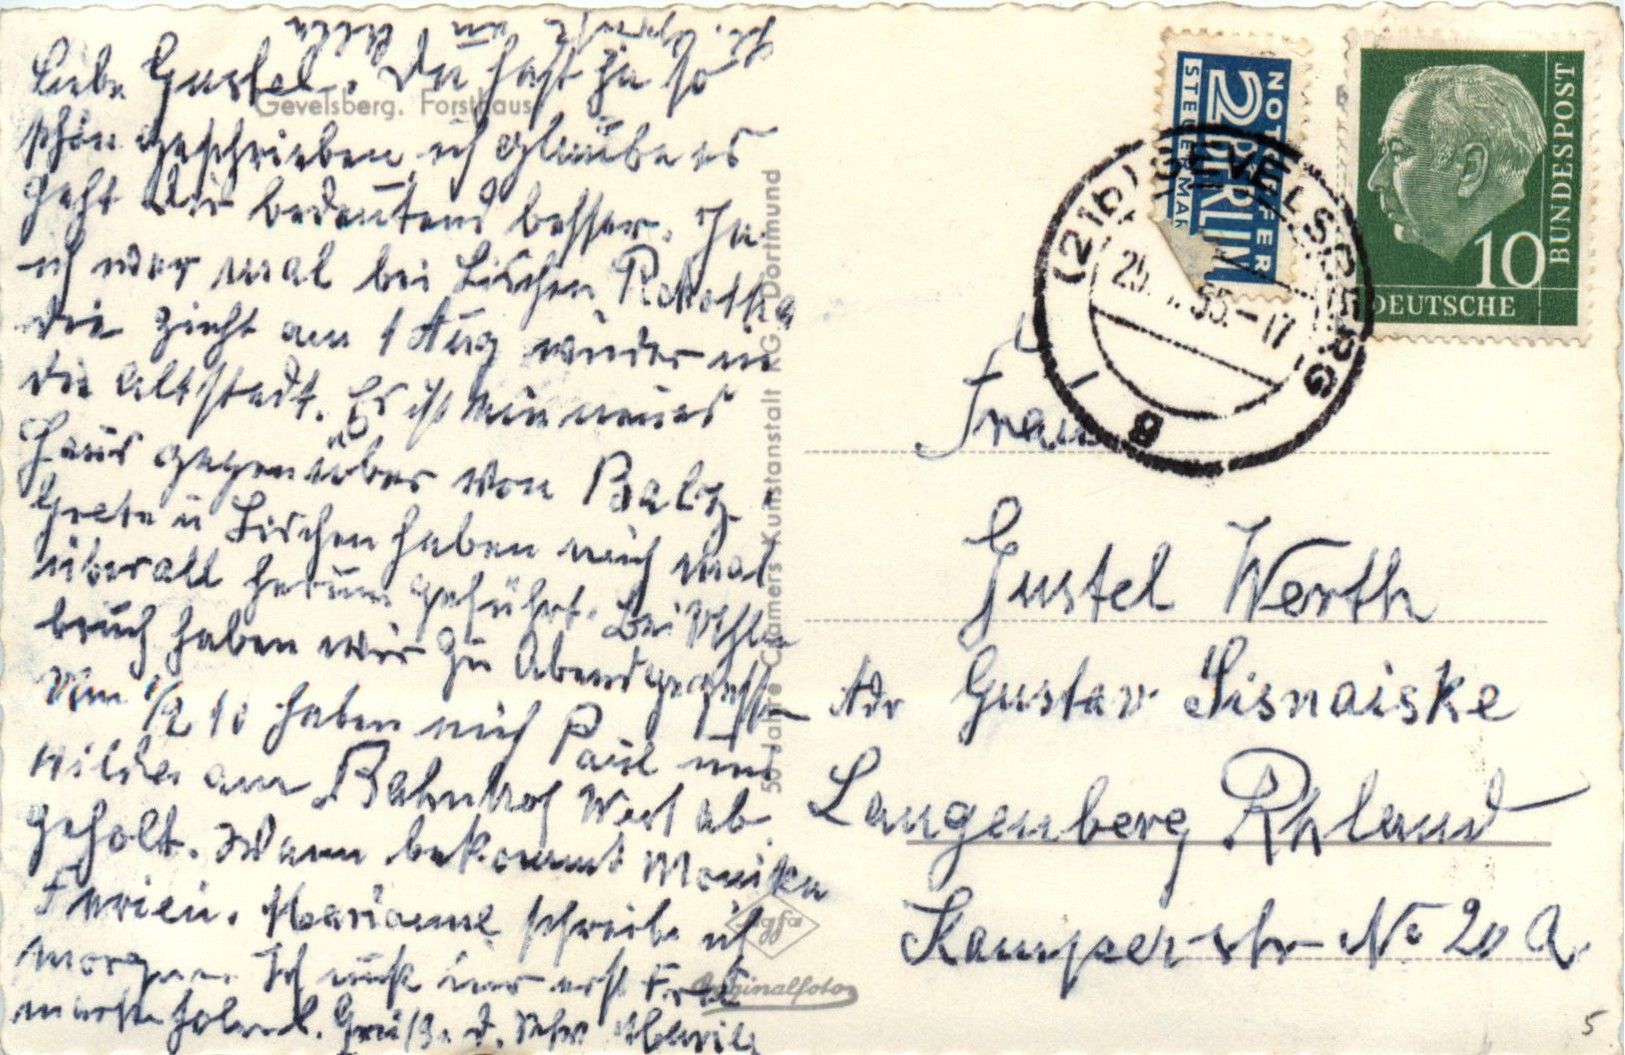 Liebe Gustel. Du hast ja so
schön geschrieben ich glaube es
geht Dir bedeutend besser. Ja
ich war mal bei Lischen
die zieht am 1 Aug wieder in
die Altstadt. Es ist ein neues
Haus gegenüber von Balz
Grete u Lischen haben mich mal
überall herum geführt. Bei
bruch haben wir zu Abend gegessen
Um 1/2 10 haben mich Paul und
Hilde am Bahnhof West ab
geholt. Wann bekommt Monika
Ferien. Marianne schreibe ich
morgen. Ich muß mir erst Frei
marke holen. Grüße d.
Gevelsberg. Forsthaus
50 Jahre Cramers Kunstanstalt KG. Dortmund
Agfa
Originalfoto
NOTOPFER
2 BERLIN
STEUERMARKE
10
DEUTSCHE
BUNDESPOST
(21b) GEVELSBERG
Frau
Gustel Werth
Adr Gustav Lisnaiske
Langenberg Rhland
Kamperstr No 20 a
5